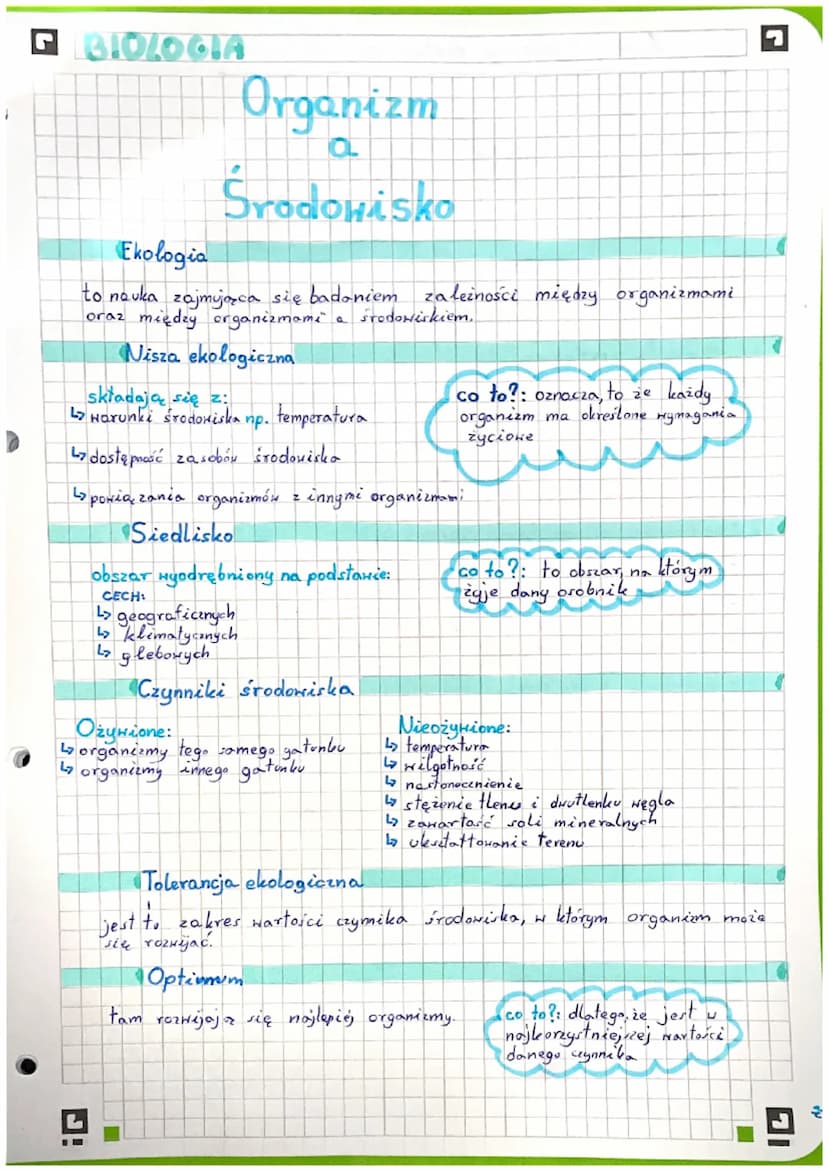 BIOLOGIA
Organizm
a
Środowisko
Ekologia
to nauka zajmująca się badaniem zależności między organizmami
oraz między organizmami a środowiskiem.
Nisza ekologiczna
składają się z:
↳ warunki środowiska np. temperatura
↳ dostępność zasobów środowiska
↳ powiązania organizmów z innymi organizmami
co to?: oznacza, to że każdy
organizm ma określone wymagania
życiowe
Siedlisko
obszar wyodrębniony na podstawie:
CECH:
↳ geograficznych
↳ klimatycznych
↳ glebowych
co to?: to obszar, na którym
żyje dany osobnik
Czynniki środowiska
Ożywione:
↳ organizmy tego samego gatunku
↳ organizmy innego gatunku
Nieożywione:
↳ temperatura
↳ wilgotność
↳ nasłonecznienie
↳ stężenie tlenu i dwutlenku węgla
↳ zawartość soli mineralnych
↳ ukształtowanie terenu
Tolerancja ekologiczna
jest to zakres wartości czynnika środowiska, w którym organizm może
się rozwijać.
Optimum
tam rozwijają się najlepiej organizmy.
co to?: dlatego, że jest w
najkorzystniejszej wartości
danego czynnika